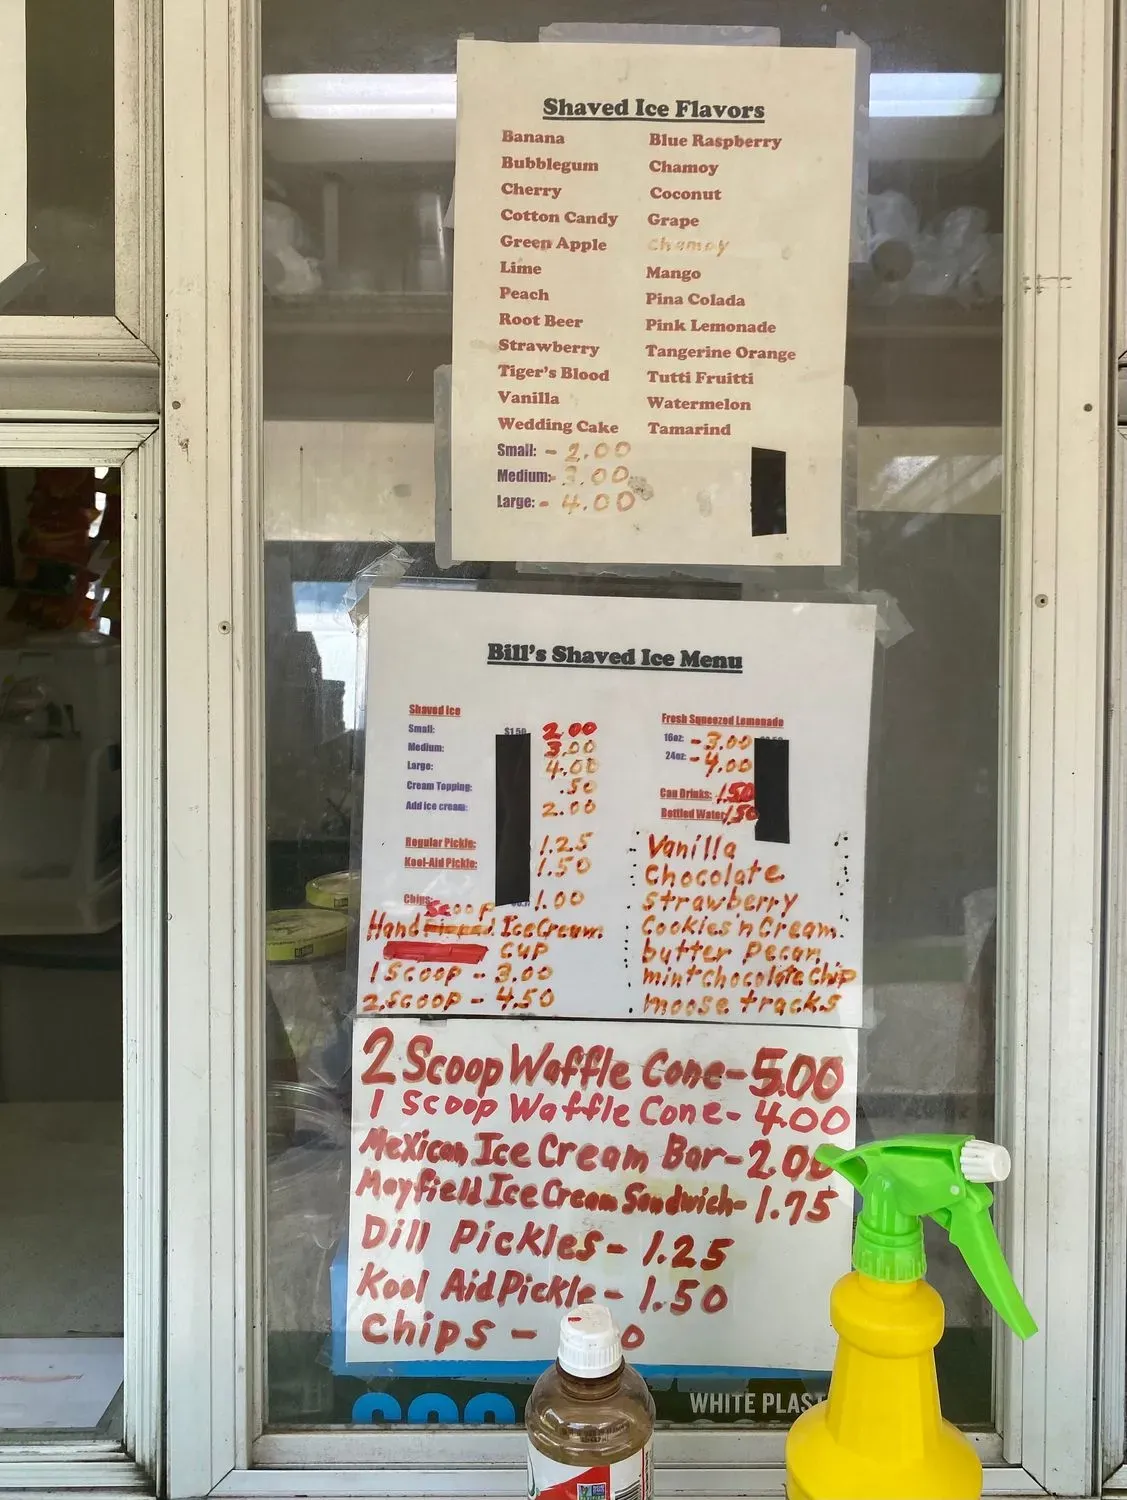 Shaved Ice Flavors
Banana
Bubblegum
Cherry
Cotton Candy
Green Apple
Lime
Peach
Root Beer
Strawberry
Tiger's Blood
Vanilla
Wedding Cake
Blue Raspberry
Chamoy
Coconut
Grape
Chamoy
Mango
Pina Colada
Pink Lemonade
Tangerine Orange
Tutti Fruitti
Watermelon
Tamarind
Small: - 2.00
Medium: - 3.00
Large: - 4.00
Bill's Shaved Ice Menu
Shaved Ice
Small: $1.50 2.00
Medium: 3.00
Large: 4.00
Cream Topping: .50
Add ice cream: 2.00
Regular Pickle: 1.25
Kool-Aid Pickle: 1.50
Chips: 1.00
Scoop
Hand Ice Cream
cup
1 Scoop - 3.00
2 Scoop - 4.50
Fresh Squeezed Lemonade
16oz: - 3.00
24oz: - 4.00
Can Drinks: 1.50
Bottled Water 1.50
Vanilla
Chocolate
Strawberry
Cookies'n Cream
butter Pecan
mint chocolate chip
moose tracks
2 Scoop Waffle Cone - 5.00
1 Scoop Waffle Cone - 4.00
Mexican Ice Cream Bar - 2.00
Mayfield Ice Cream Sandwich - 1.75
Dill Pickles - 1.25
Kool Aid Pickle - 1.50
Chips -
WHITE PLAST